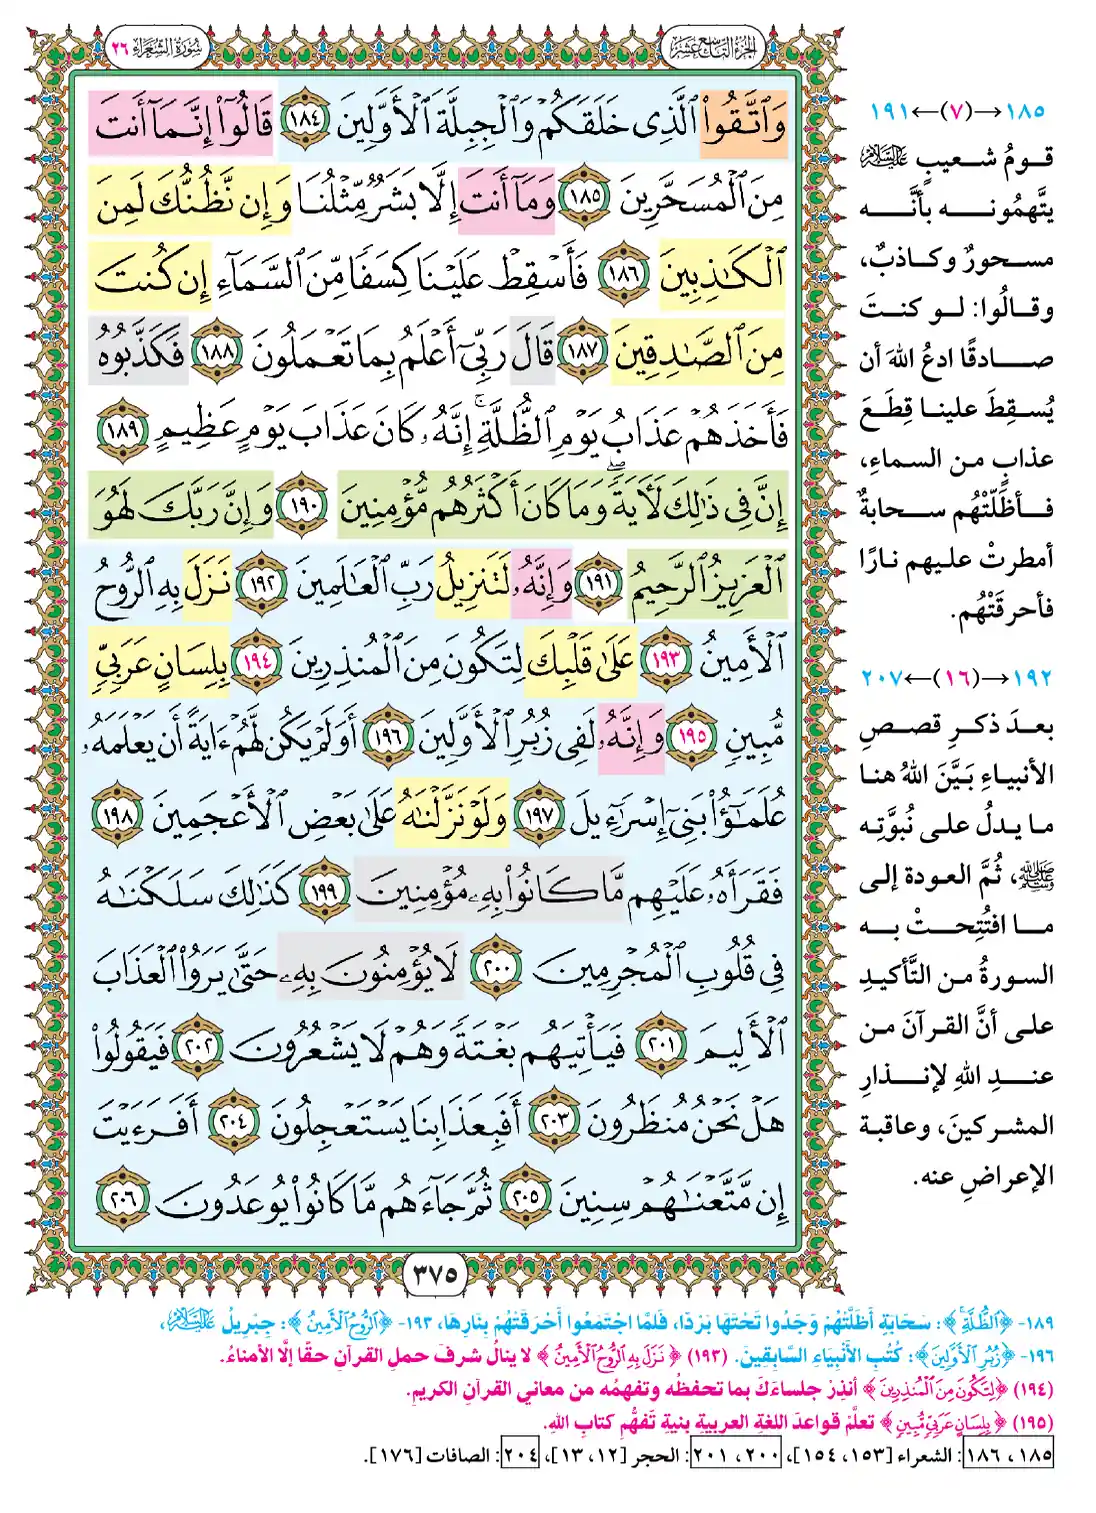 الجزء التاسع عشر
سورة الشعراء ٢٦
وَٱتَّقُوا۟ ٱلَّذِى خَلَقَكُمْ وَٱلْجِبِلَّةَ ٱلْأَوَّلِينَ ١٨٤ قَالُوٓا۟ إِنَّمَآ أَنتَ
مِنَ ٱلْمُسَحَّرِينَ ١٨٥ وَمَآ أَنتَ إِلَّا بَشَرٌ مِّثْلُنَا وَإِن نَّظُنُّكَ لَمِنَ
ٱلْكَـٰذِبِينَ ١٨٦ فَأَسْقِطْ عَلَيْنَا كِسَفًا مِّنَ ٱلسَّمَآءِ إِن كُنتَ
مِنَ ٱلصَّـٰدِقِينَ ١٨٧ قَالَ رَبِّىٓ أَعْلَمُ بِمَا تَعْمَلُونَ ١٨٨ فَكَذَّبُوهُ
فَأَخَذَهُمْ عَذَابُ يَوْمِ ٱلظُّلَّةِ ۚ إِنَّهُۥ كَانَ عَذَابَ يَوْمٍ عَظِيمٍ ١٨٩
إِنَّ فِى ذَٰلِكَ لَـَٔايَةً ۖ وَمَا كَانَ أَكْثَرُهُم مُّؤْمِنِينَ ١٩٠ وَإِنَّ رَبَّكَ لَهُوَ
ٱلْعَزِيزُ ٱلرَّحِيمُ ١٩١ وَإِنَّهُۥ لَتَنزِيلُ رَبِّ ٱلْعَـٰلَمِينَ ١٩٢ نَزَلَ بِهِ ٱلرُّوحُ
ٱلْأَمِينُ ١٩٣ عَلَىٰ قَلْبِكَ لِتَكُونَ مِنَ ٱلْمُنذِرِينَ ١٩٤ بِلِسَانٍ عَرَبِىٍّ
مُّبِينٍ ١٩٥ وَإِنَّهُۥ لَفِى زُبُرِ ٱلْأَوَّلِينَ ١٩٦ أَوَلَمْ يَكُن لَّهُمْ ءَايَةً أَن يَعْلَمَهُۥ
عُلَمَـٰٓؤُا۟ بَنِىٓ إِسْرَٰٓءِيلَ ١٩٧ وَلَوْ نَزَّلْنَـٰهُ عَلَىٰ بَعْضِ ٱلْأَعْجَمِينَ ١٩٨
فَقَرَأَهُۥ عَلَيْهِم مَّا كَانُوا۟ بِهِۦ مُؤْمِنِينَ ١٩٩ كَذَٰلِكَ سَلَكْنَـٰهُ
فِى قُلُوبِ ٱلْمُجْرِمِينَ ٢٠٠ لَا يُؤْمِنُونَ بِهِۦ حَتَّىٰ يَرَوُا۟ ٱلْعَذَابَ
ٱلْأَلِيمَ ٢٠١ فَيَأْتِيَهُم بَغْتَةً وَهُمْ لَا يَشْعُرُونَ ٢٠٢ فَيَقُولُوا۟
هَلْ نَحْنُ مُنظَرُونَ ٢٠٣ أَفَبِعَذَابِنَا يَسْتَعْجِلُونَ ٢٠٤ أَفَرَءَيْتَ
إِن مَّتَّعْنَـٰهُمْ سِنِينَ ٢٠٥ ثُمَّ جَآءَهُم مَّا كَانُوا۟ يُوعَدُونَ ٢٠٦
٣٧٥
١٨٥→(٧)←١٩١
قومُ شعيبٍ عليه السلام
يتَّهمُونه بأنَّه
مسحورٌ وكاذبٌ،
وقالُوا: لو كنتَ
صادقًا ادعُ اللهَ أن
يُسقِطَ علينا قِطَعَ
عذابٍ من السماءِ،
فأظلّتْهُم سحابةٌ
أمطرتْ عليهم نارًا
فأحرقَتْهُم.
١٩٢→(١٦)←٢٠٧
بعدَ ذكرِ قصصِ
الأنبياءِ بَيَّنَ اللهُ هنا
ما يدلُ على نُبوَّتِه
ﷺ، ثُمَّ العودة إلى
ما افتُتِحتْ به
السورةُ من التَّأكيدِ
على أنَّ القرآنَ من
عندِ اللهِ لإنذارِ
المشركينَ، وعاقبة
الإعراضِ عنه.
١٨٩- ﴿ٱلظُّلَّةِ﴾: سَحَابَةٍ أَظَلَّتْهُمْ وَجَدُوا تَحْتَهَا بَرْدًا، فَلَمَّا اجْتَمَعُوا أَحْرَقَتْهُمْ بِنَارِهَا، ١٩٣- ﴿ٱلرُّوحُ ٱلْأَمِينُ﴾: جِبْرِيلُ عليه السلام،
١٩٦- ﴿زُبُرِ ٱلْأَوَّلِينَ﴾: كُتُبِ الأَنْبِيَاءِ السَّابِقِينَ. (١٩٣) ﴿نَزَلَ بِهِ ٱلرُّوحُ ٱلْأَمِينُ﴾ لا ينالُ شرفَ حملِ القرآنِ حقًا إلَّا الأمناءُ.
(١٩٤) ﴿لِتَكُونَ مِنَ ٱلْمُنذِرِينَ﴾ أنذِرْ جلساءَكَ بما تحفظُه وتفهمُه من معاني القرآنِ الكريمِ.
(١٩٥) ﴿بِلِسَانٍ عَرَبِىٍّ مُّبِينٍ﴾ تعلَّمْ قواعدَ اللغةِ العربيةِ بنيةِ تَفهُّمِ كتابِ اللهِ.
١٨٥، ١٨٦: الشعراء [١٥٣، ١٥٤]، ٢٠٠، ٢٠١: الحجر [١٢، ١٣]، ٢٠٤: الصافات [١٧٦].